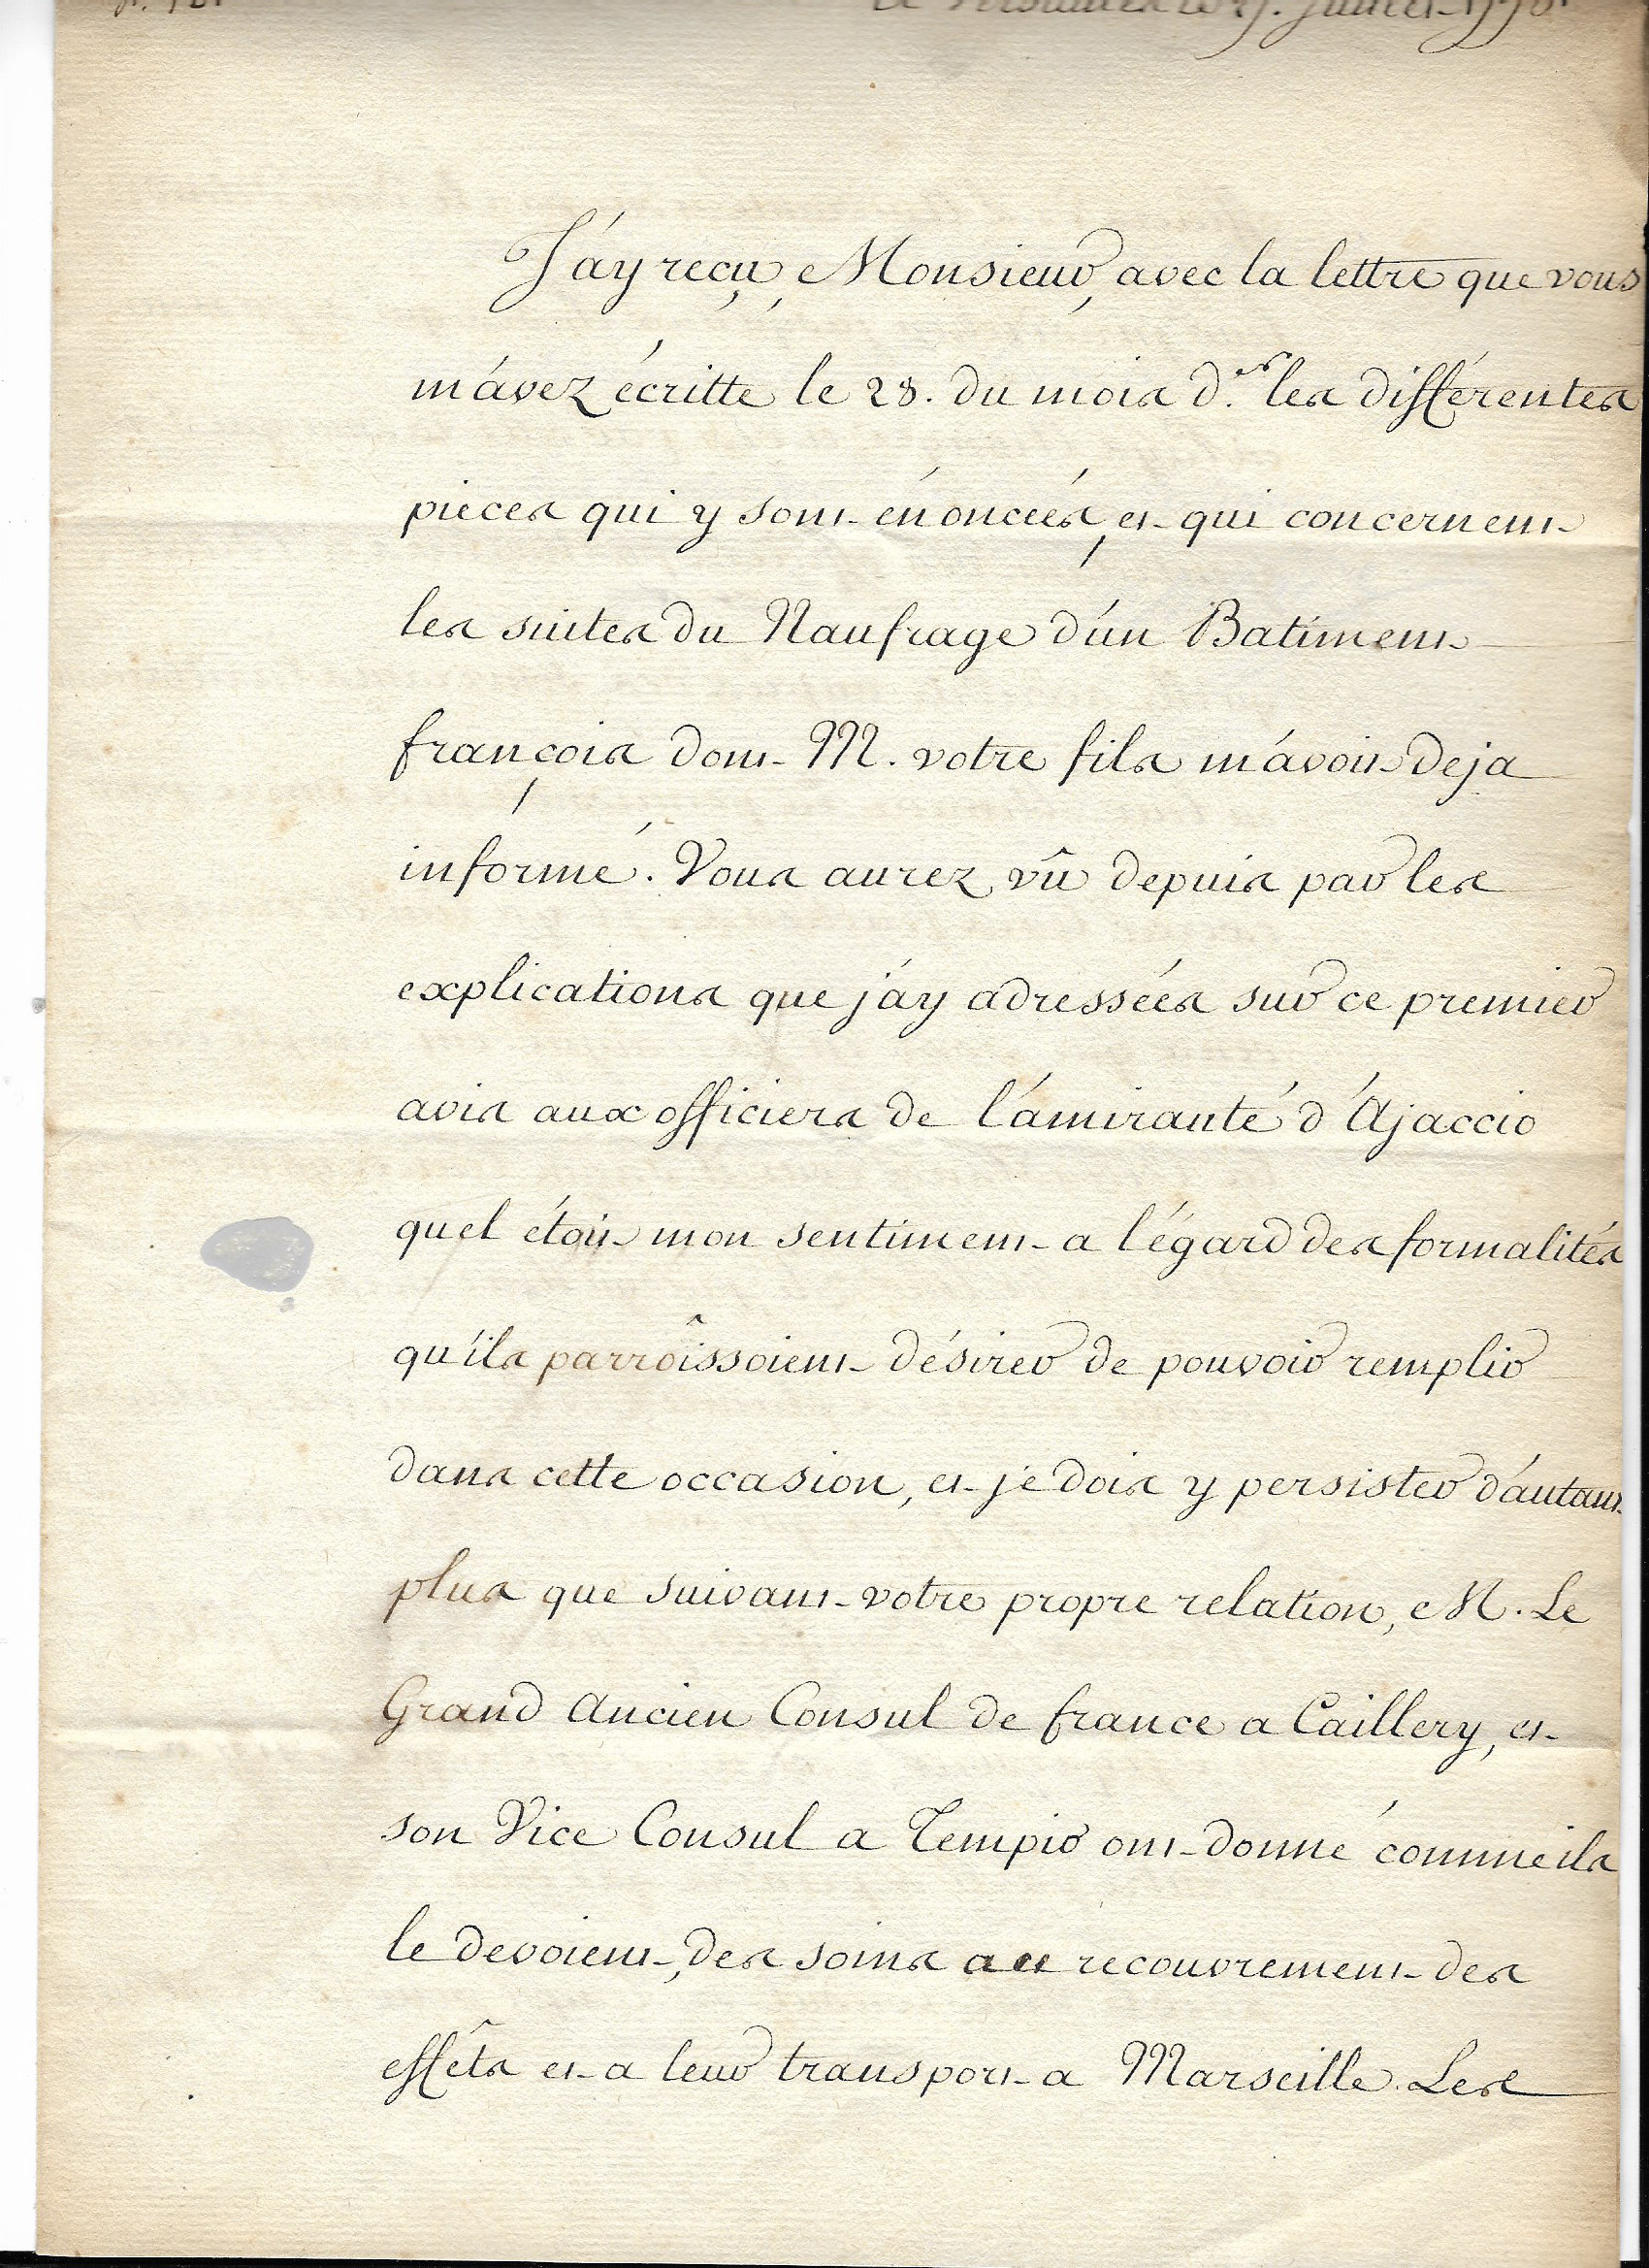 J'ay reçu, Monsieur, avec la lettre que vous
m'avez écritte le 28. du mois d.er les différentes
pieces qui y sont énoncées, et qui concernent
les suites du Naufrage d'un Batiment
françois dont M. votre fils m'avoit deja
informé. Vous aurez vû depuis par les
explications que j'ay adressées sur ce premier
avis aux officiers de l'amirauté d'Ajaccio
quel étoit mon sentiment a l'égard des formalités
qu'ils parroîssoient désirer de pouvoir remplir
dans cette occasion, et je dois y persister d'autant
plus que suivant votre propre relation, M. Le
Grand Ancien Consul de france a Caillery, et
son Vice Consul a Tempio ont donné comme ils
le devoient, des soins au recouvrement des
effêts et a leur transport a Marseille. Les